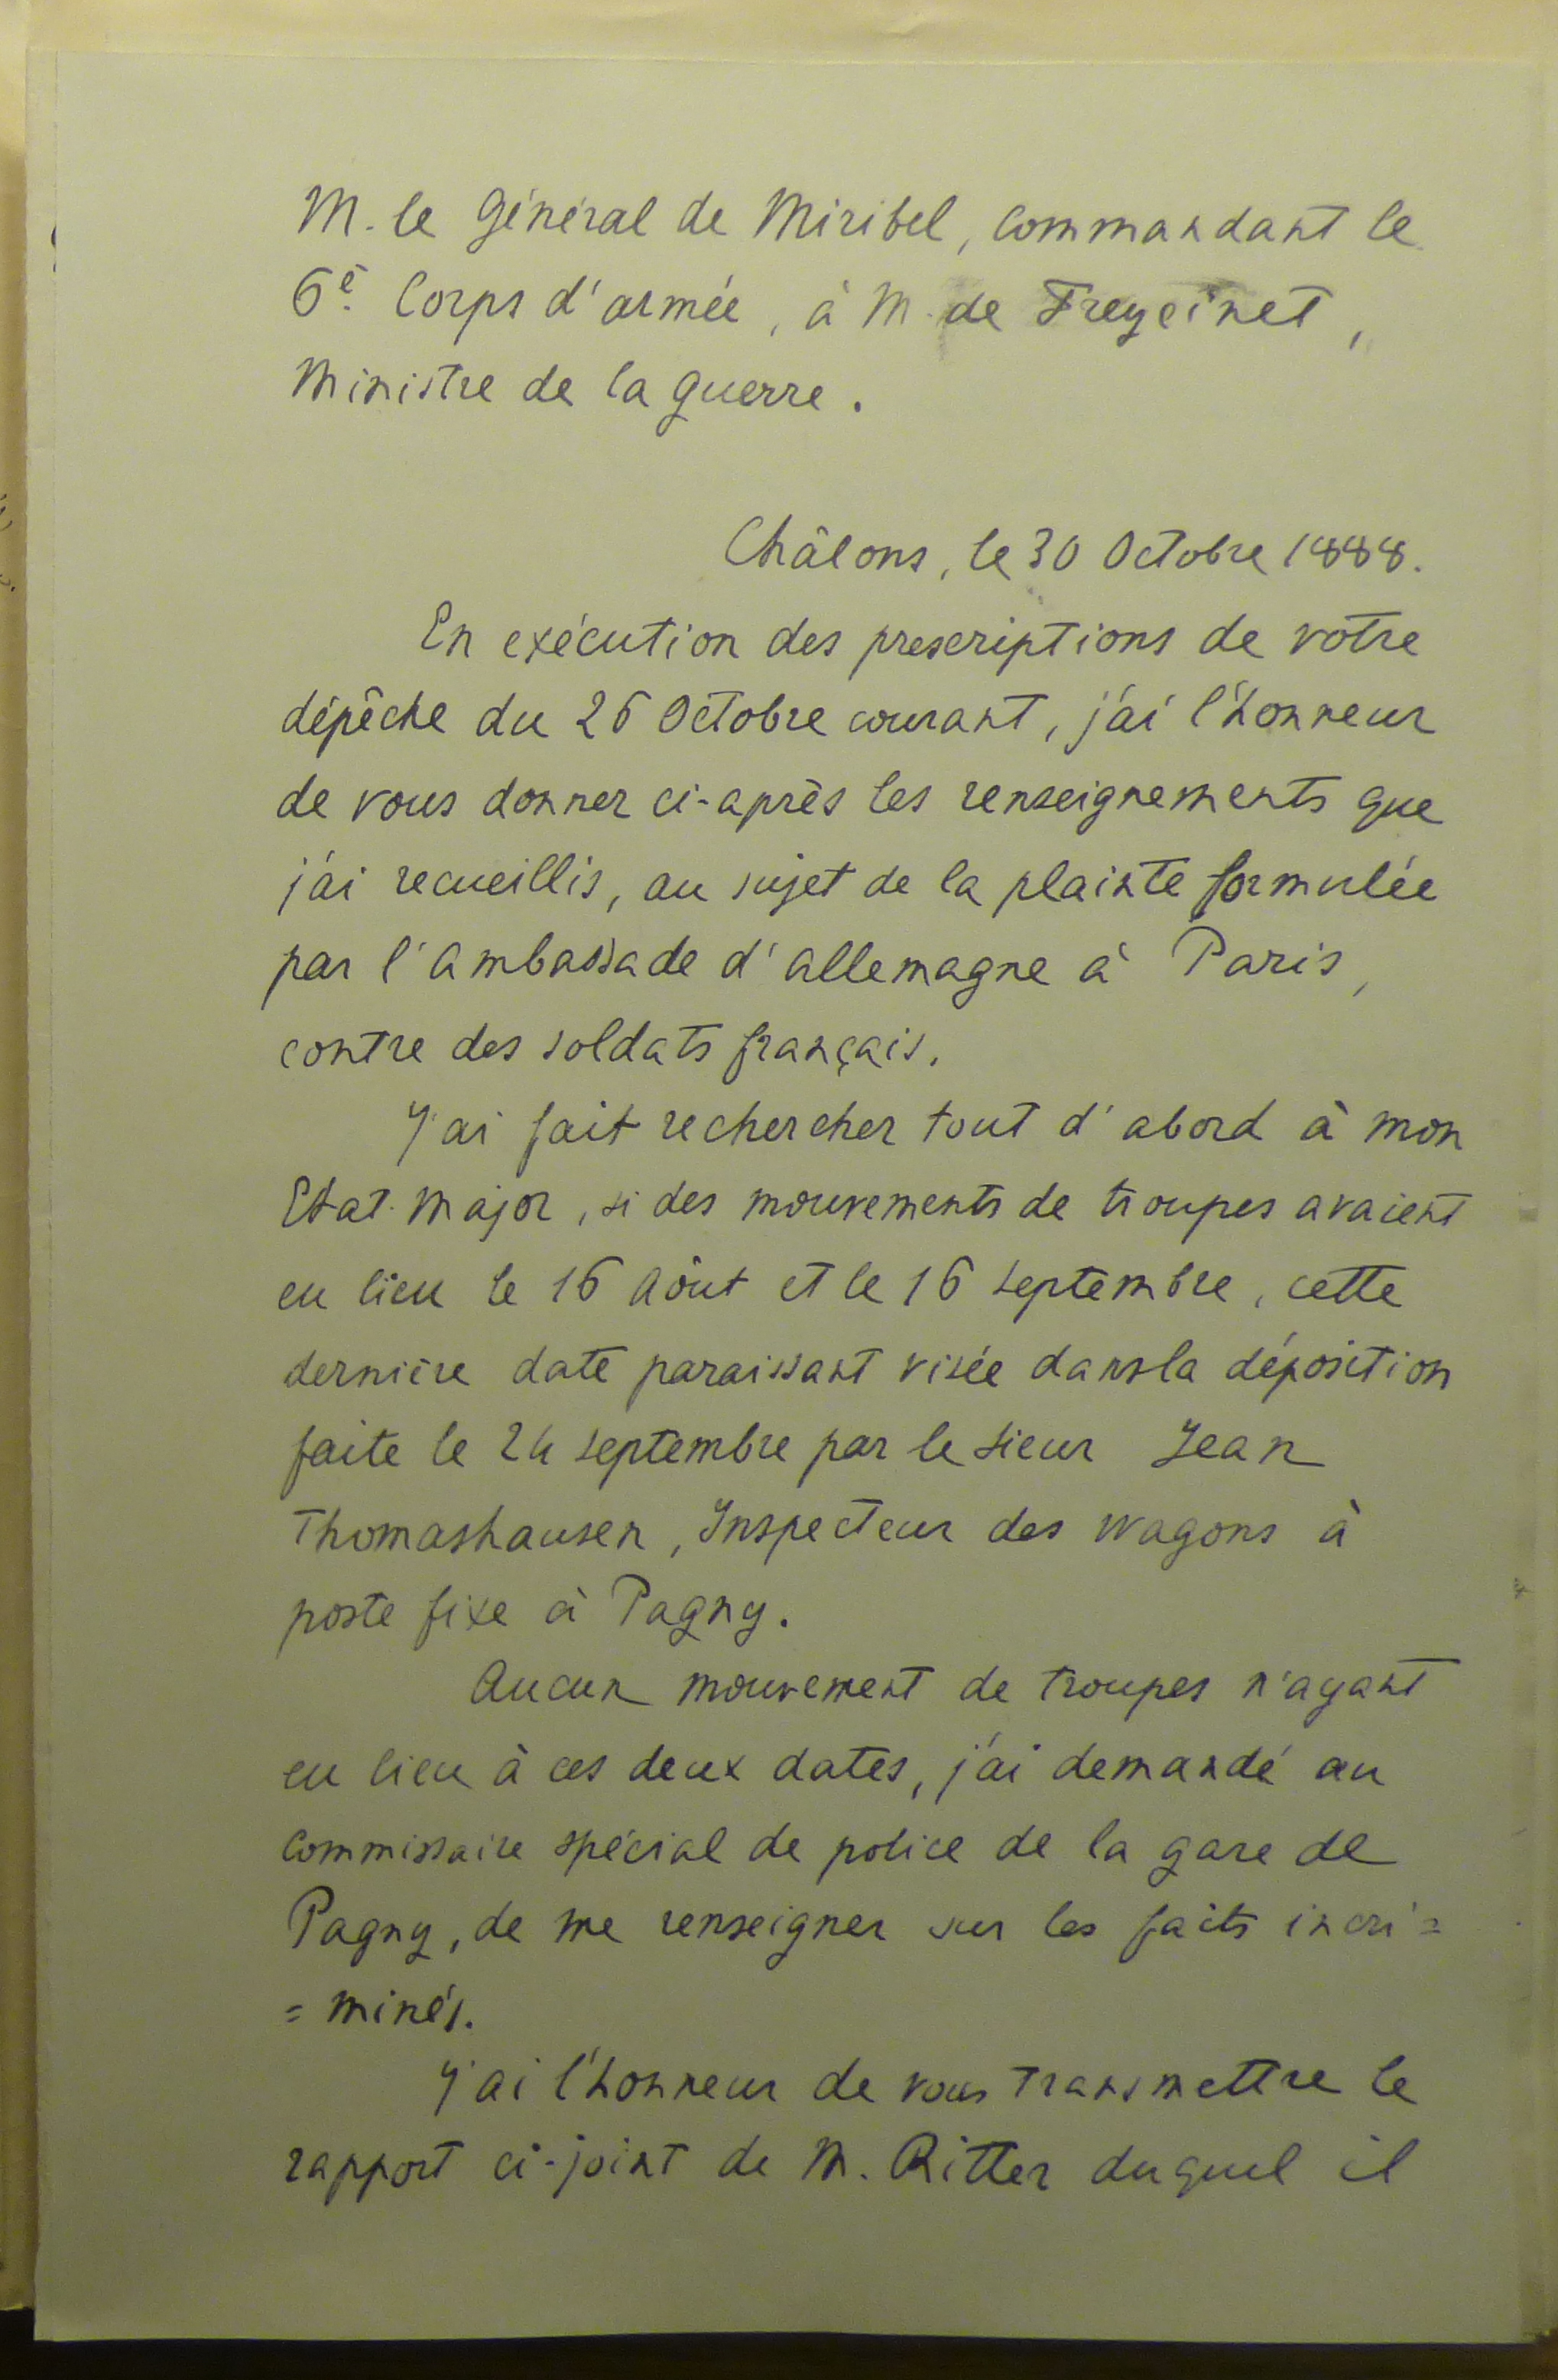 M. le Général de Miribel, Commandant le
6è. Corps d'armée, à M. de Freycinet,
Ministre de la guerre.
Châlons, le 30 Octobre 1888.
En exécution des prescriptions de votre
dépêche du 26 Octobre courant, j'ai l'honneur
de vous donner ci-après les renseignements que
j'ai recueillis, au sujet de la plainte formulée
par l'Ambassade d'allemagne à Paris,
contre des soldats français.
J'ai fait rechercher tout d'abord à mon
Etat-Major, si des mouvements de troupes avaient
eu lieu le 16 Aôut et le 16 septembre, cette
dernière date paraissant visée dans la déposition
faite le 24 septembre par le sieur Jean
Thomashausen, Inspecteur des wagons à
poste fixe à Pagny.
Aucun mouvement de troupes n'ayant
eu lieu à ces deux dates, j'ai demandé au
Commissaire spécial de police de la gare de
Pagny, de me renseigner sur les faits incri=
=minés.
J'ai l'honneur de vous transmettre le
rapport ci-joint de M. Ritter duquel il